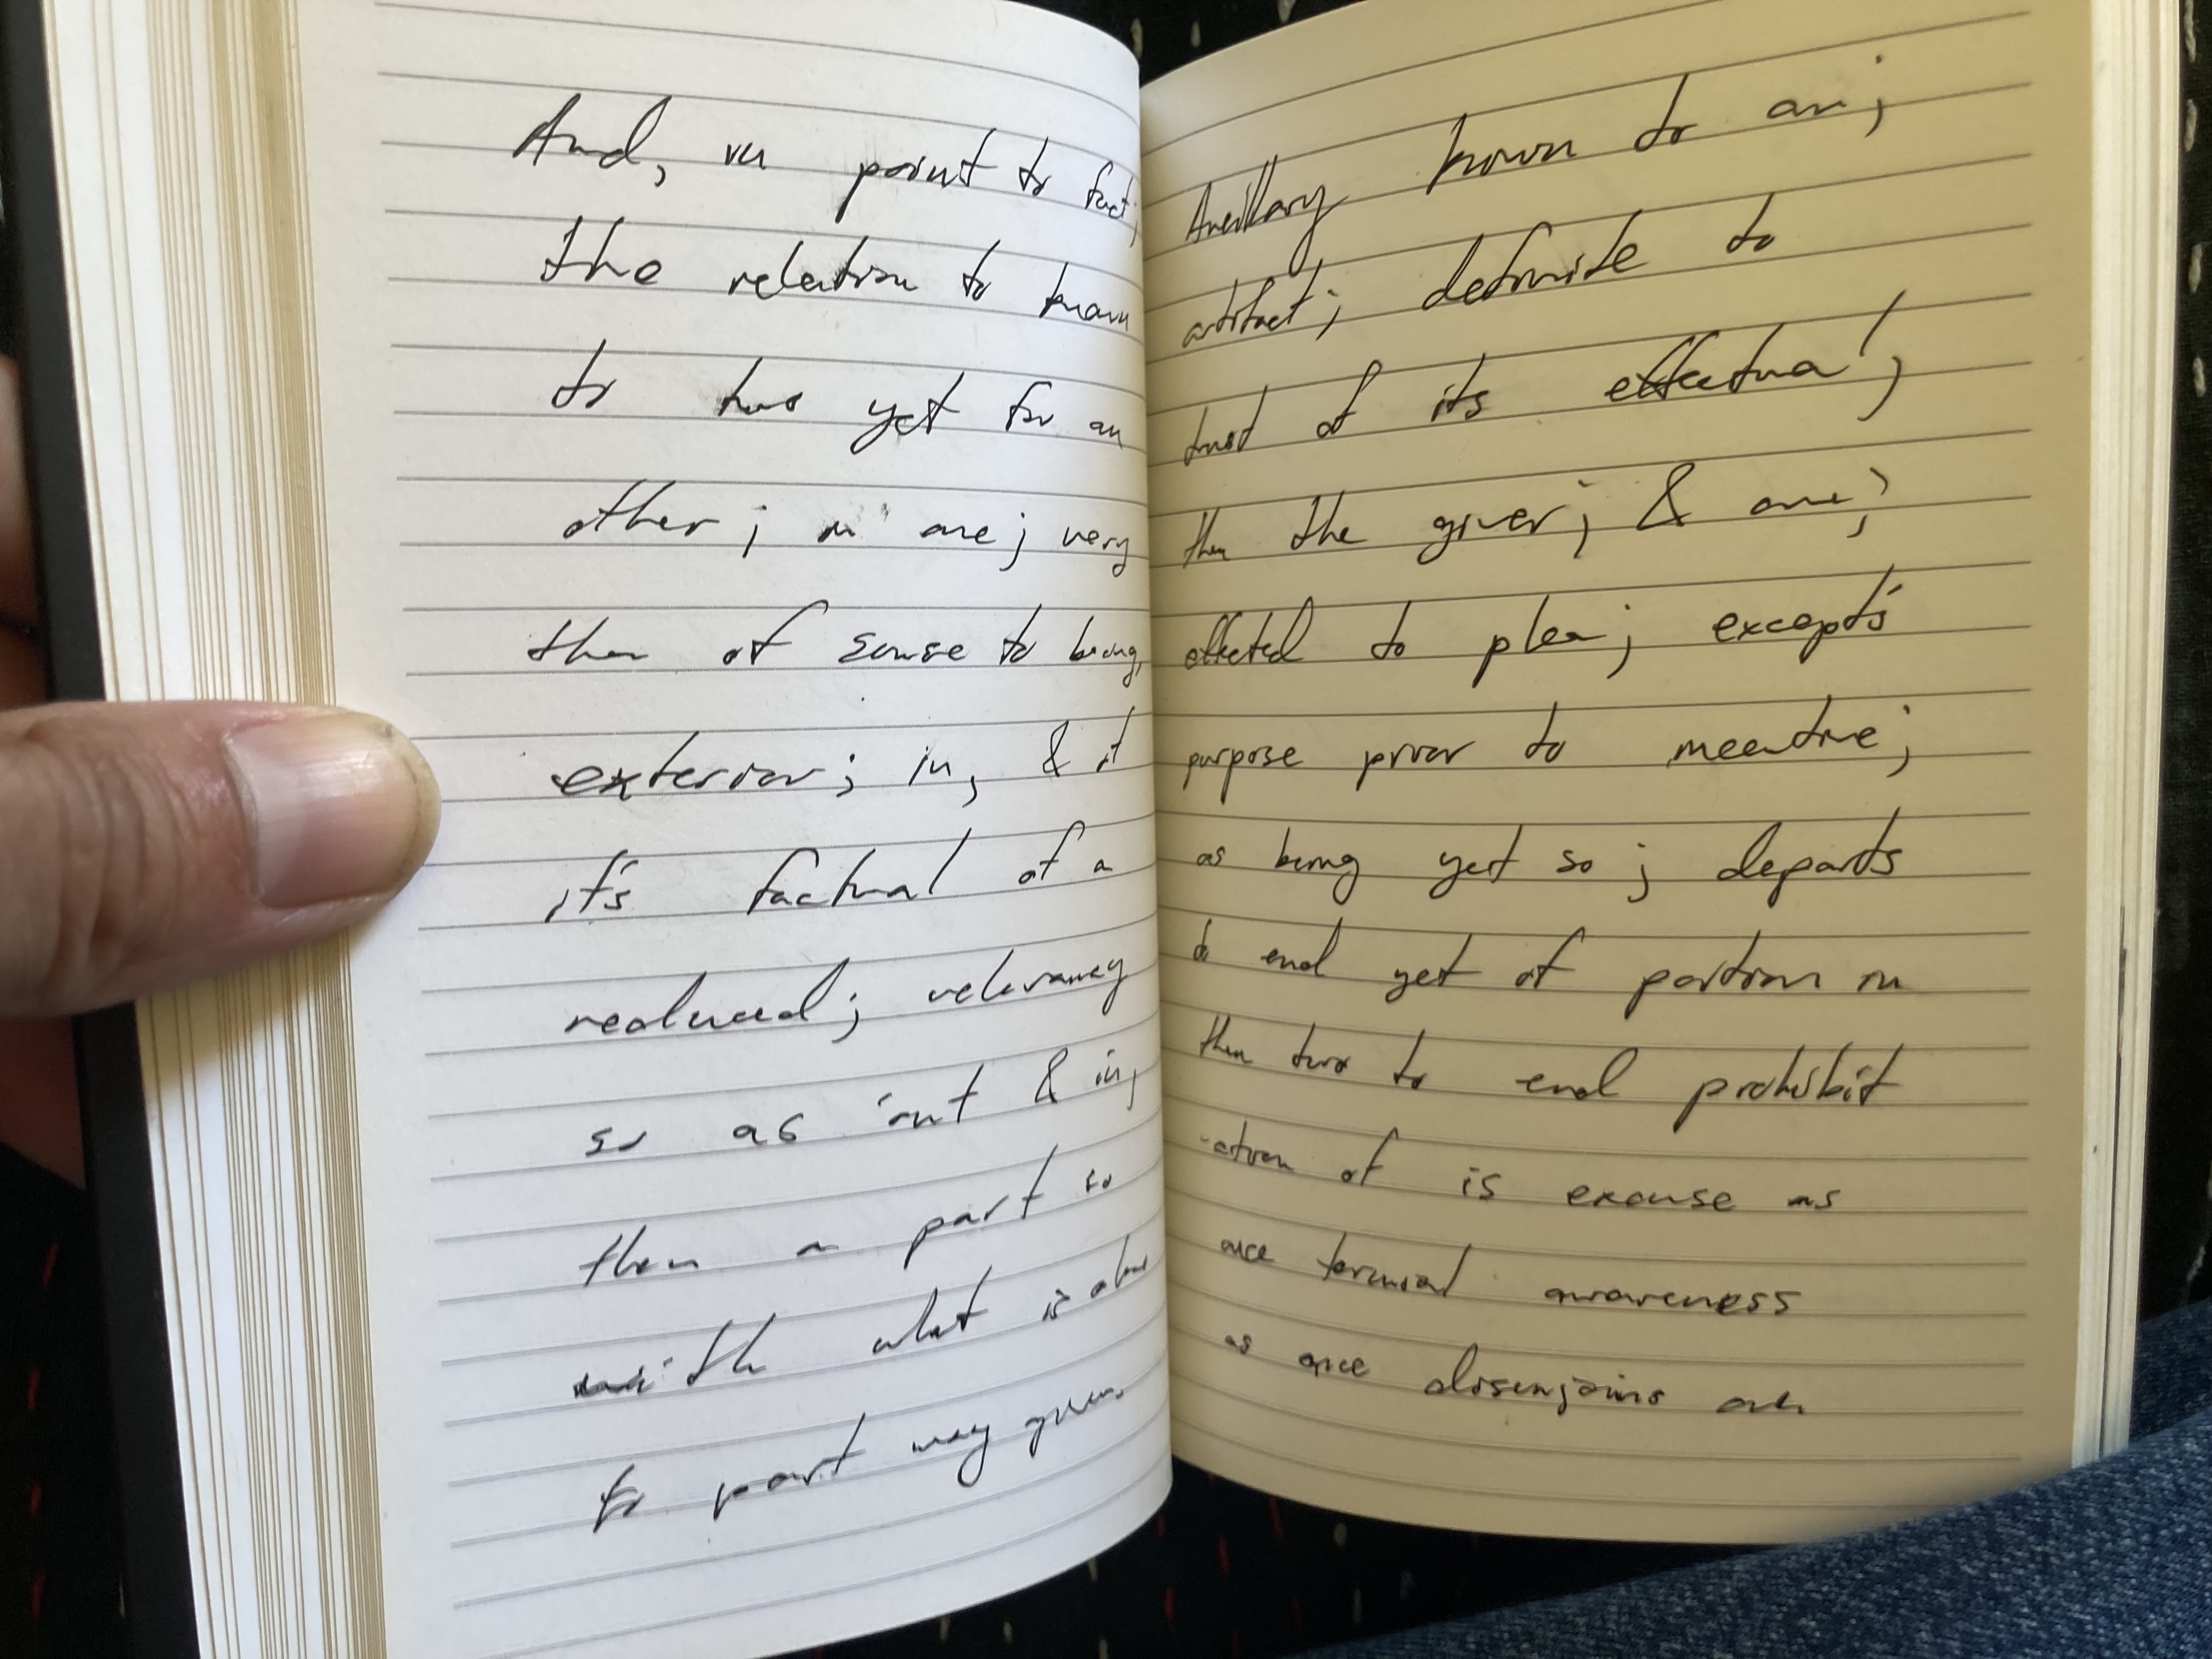 And, in point to fact;
the relation to known
to two yet for an
other; in one; very
then of sense to being,
exterior; in, & it
it's factual of a
reduced; relevancy
so as out & in,
then a part so
with what is
to part way given.
Ancillary known to an;
artifact; definite to
trust of its effectual;
then the giver; & one;
effected to plea; excepts
purpose prior to
as being yet so; departs
to end yet of portion in
then two to end prohibit
-ation of is excuse as
once awareness
as once disenjoins an